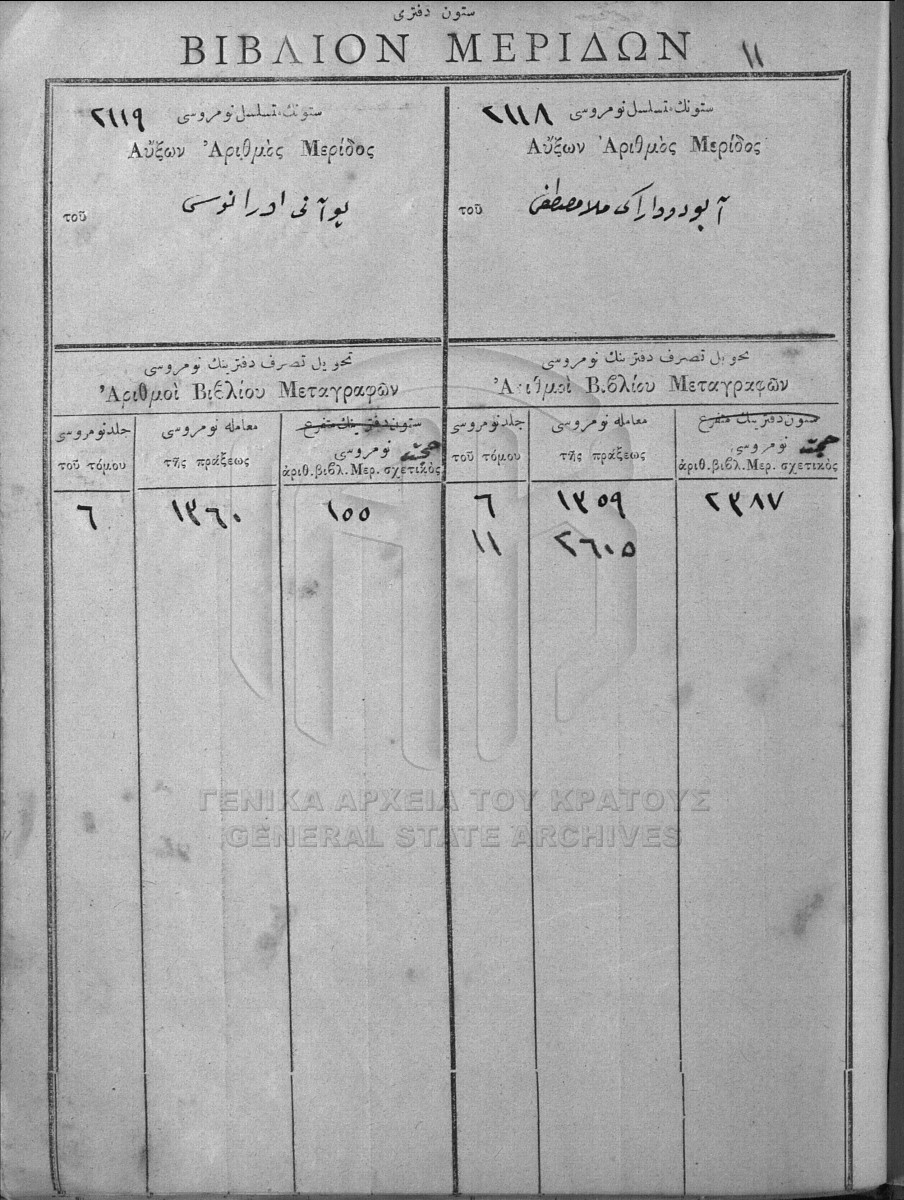 ستون دفترى
ΒΙΒΛΙΟΝ ΜΕΡΙΔΩΝ
١١
ستونك تسلسل نومروسى ٢١١٨
Αὔξων Ἀριθμὸς Μερίδος
τοῦ
ملا مصطفى
ستونك تسلسل نومروسى ٢١١٩
Αὔξων Ἀριθμὸς Μερίδος
τοῦ
تحويل تصرف دفترينك نومروسى
Ἀριθμοὶ Βιβλίου Μεταγραφῶν
جلد نومروسى
τοῦ τόμου
معامله نومروسى
τῆς πράξεως
ستون دفترينك متفرع
حجت نومروسى
ἀριθ. βιβλ. Μερ. σχετικὸς
٦ ١٣٥٩ ٢٣٨٧
١١ ٢٦٠٥
تحويل تصرف دفترينك نومروسى
Ἀριθμοὶ Βιβλίου Μεταγραφῶν
جلد نومروسى
τοῦ τόμου
معامله نومروسى
τῆς πράξεως
ستون دفترينك متفرع
حجت نومروسى
ἀριθ. βιβλ. Μερ. σχετικὸς
٦ ١٣٦٠ ١٥٥
ΓΕΝΙΚΑ ΑΡΧΕΙΑ ΤΟΥ ΚΡΑΤΟΥΣ
GENERAL STATE ARCHIVES